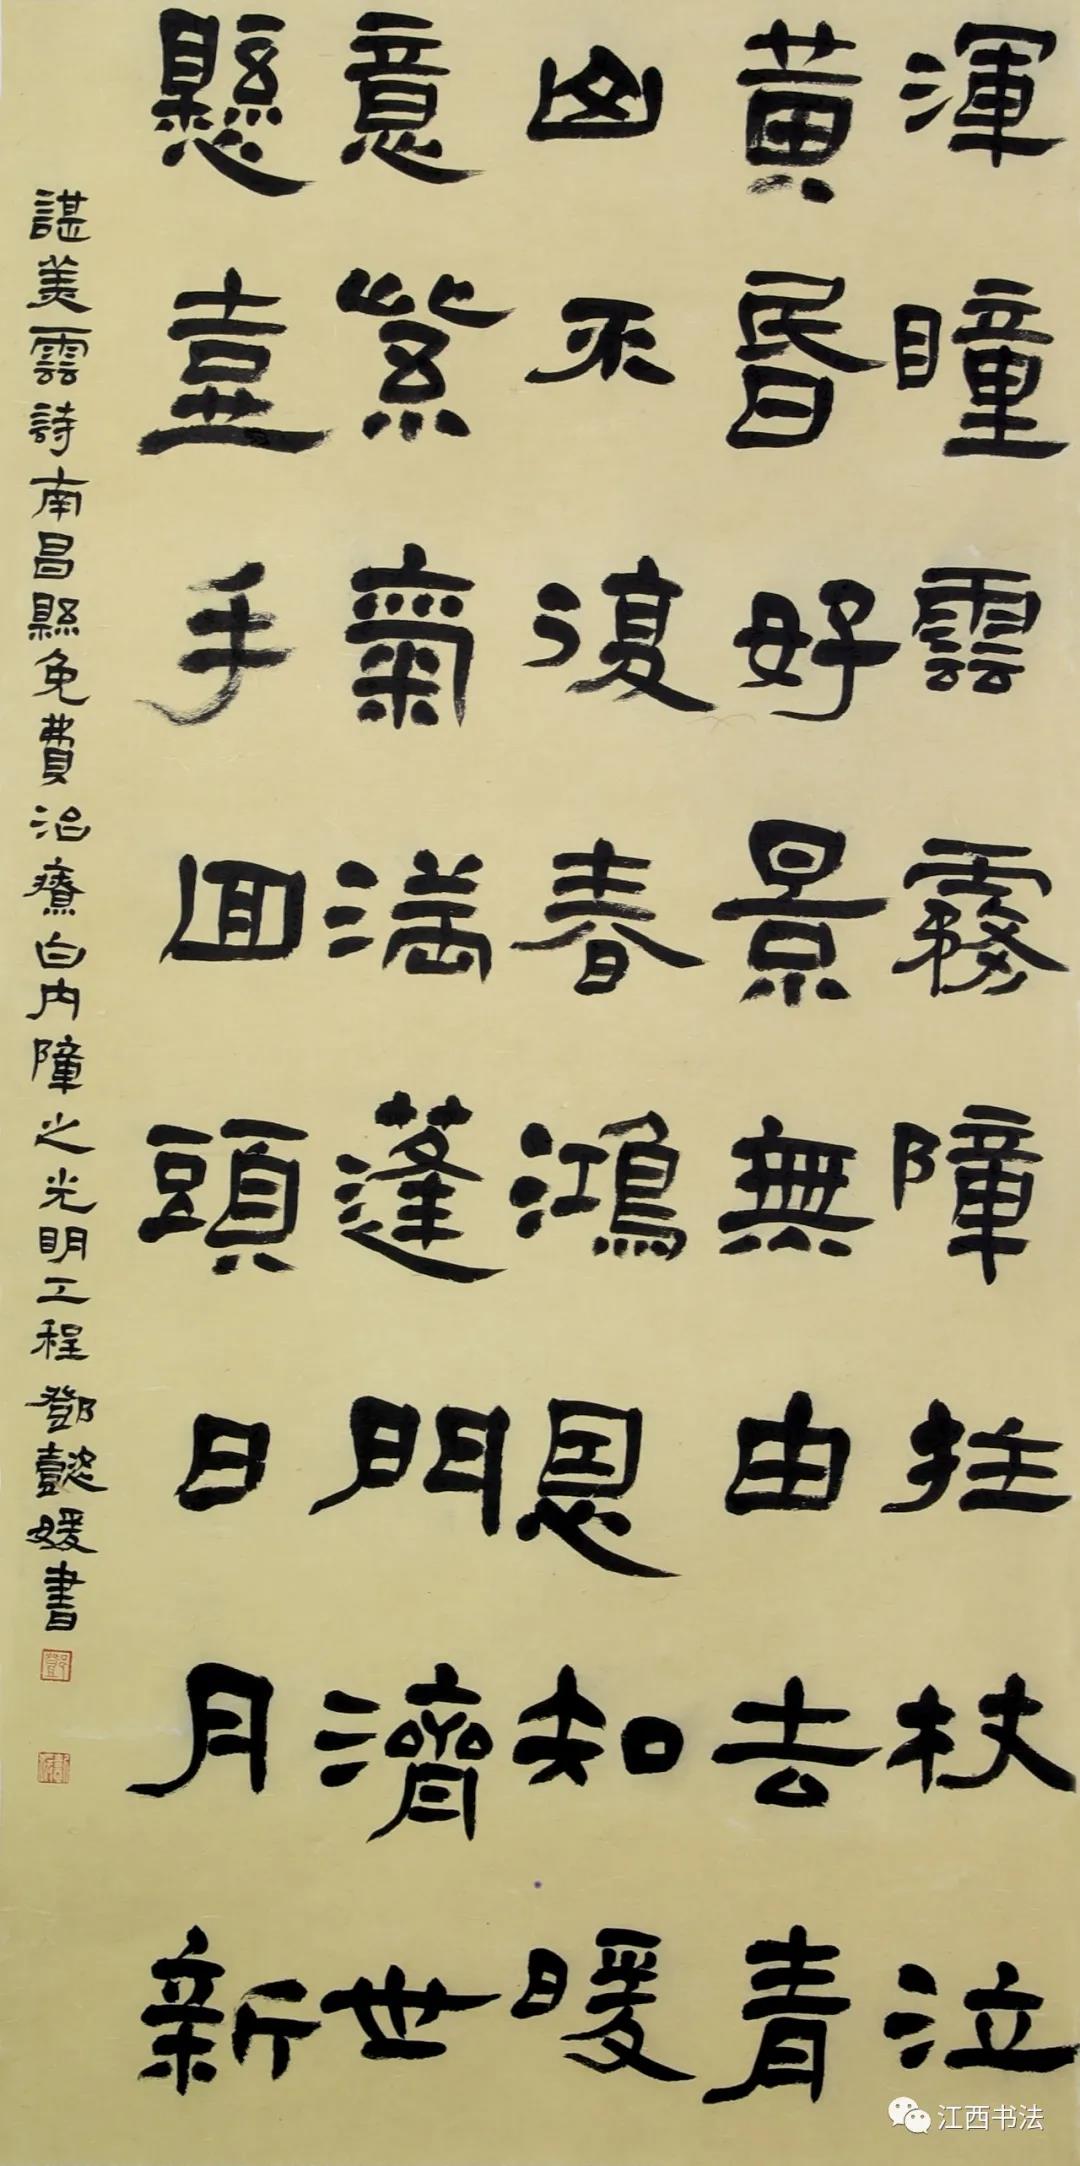 渾瞳雲霧障拄杖泣
黄昏好景無由去青
山不復春鴻恩知暖
意紫氣满蓬門濟世
懸壺手回頭日月新
諶美雲詩南昌縣免費治療白内障之光明工程鄧懿媛書
江西书法